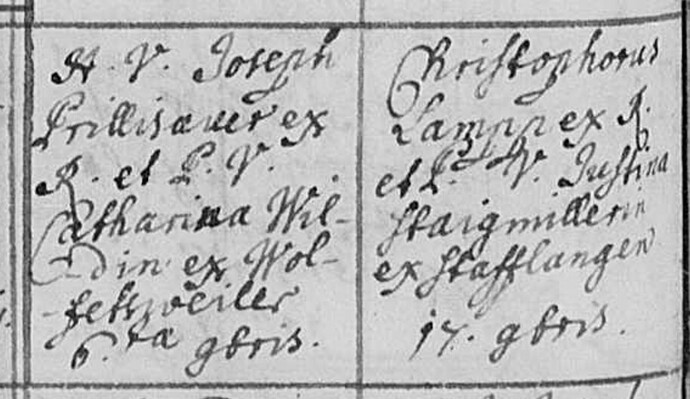 H. V. Joseph
Prillisauer ex
R. et P. V.
Catharina Wil-
din ex Wol-
fetsweiler
6.ta 9bris.
Christophorus
Lampp ex R.
et P. V. Justina
Staigmillerin
ex Stafflangen
17. 9bris.